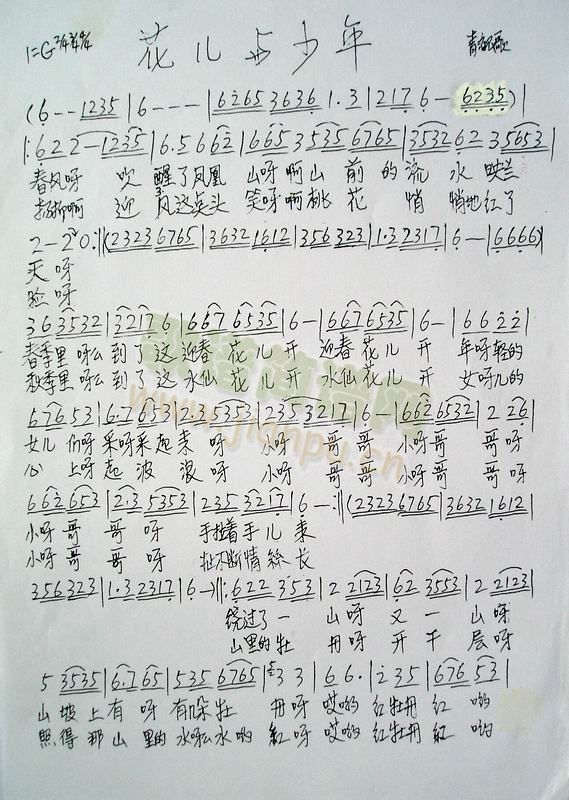 花儿与少年
1=G 2/4 3/4 4/4
青海民歌
(6 - - 1235 | 6 - - - | 6265 3636 | 1· 3 | 217 6 - 6235) |
|: 622 - 1235 | 6·5 662 | 665 3535 6765 | 3532 62 35653 |
春风呀 吹 醒了凤凰 山呀啊山 前 的流 水 映兰
杨柳啊 迎 风这点头 笑呀啊桃 花 悄 悄地红了
2 - 2 0 :|| (2323 6765 | 3632 1612 | 356 323 | 1·3 2317 | 6 - | 6666)
天 呀
脸 呀
36 3532 | 3217 6 | 667 6535 | 6 - | 667 6535 | 6 - | 66 22 |
春季里 呀么 到了这 迎春 花儿 开 迎春 花儿 开 年呀轻的
秋季里 呀么 到了这 水仙 花儿 开 水仙 花儿 开 女呀儿的
676 53 | 6·7 653 | 225 3553 | 235 3217 | 6 - | 662 6532 | 2 26 |
女儿 们呀 采呀采起来 呀 小呀 哥 哥 小呀哥 哥呀
心 上呀 起 波 浪 呀 小呀 哥 哥 小呀哥 哥呀
662 653 | 2·3 5353 | 235 3217 | 6 - :|| (2323 6765 | 3632 1612 |
小呀哥 哥 呀 手拉着手儿 来
小呀哥 哥 呀 扯不断情絲 长
356 323 | 1·3 2317 | 6 -) ||: 622 353 | 2 2123 | 62 3553 | 2 2123 |
绕过了一 山呀 又 一 山呀
山里的牡 丹呀 开 千 层呀
5 3535 | 6·7 65 | 535 6765 | 3 3 | 66· | 2 35 | 676 53 |
山 坡 上有 呀 有朵牡 丹呀 哎哟 红牡丹 红 哟
照 得 那山 里的 水呀么水哟 紅呀 哎哟 红牡丹 紅 哟
www.jianpu.cn